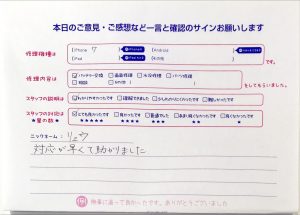 本日のご意見・ご感想など一言と確認のサインお願いします
修理機種は
iPhone 7
Android
iPad
その他
修理内容は
バッテリー交換 画面修理 水没修理 パーツ修理
その他
をしてもらいました。
スタッフの説明は
わかりやすかったです 理解できました 少しわかりにくかったです 難しかったです
スタッフの対応は
★星の数★
とても良かった 良かった 普通でした あまり良くなかった 良くなかった
★★★★★ ★★★★ ★★★ ★★ ★
ニックネーム：リュウ
対応が早くて助かりました
無事に直って良かったです。ありがとうございました